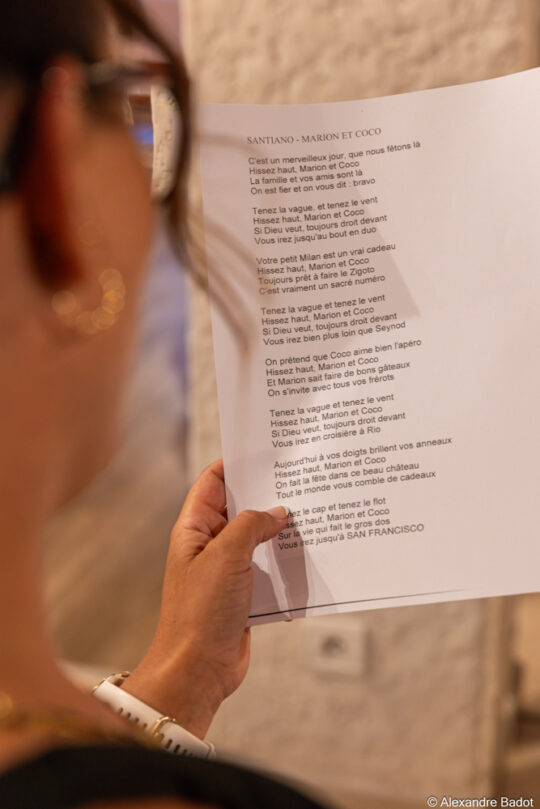 SANTIANO - MARION ET COCO
C'est un merveilleux jour, que nous fêtons là
Hissez haut, Marion et Coco
La famille et vos amis sont là
On est fier et on vous dit : bravo
Tenez la vague, et tenez le vent
Hissez haut, Marion et Coco
Si Dieu veut, toujours droit devant
Vous irez jusqu'au bout en duo
Votre petit Milan est un vrai cadeau
Hissez haut, Marion et Coco
Toujours prêt à faire le Zigoto
C'est vraiment un sacré numéro
Tenez la vague et tenez le vent
Hissez haut, Marion et Coco
Si Dieu veut, toujours droit devant
Vous irez bien plus loin que Seynod
On prétend que Coco aime bien l'apéro
Hissez haut, Marion et Coco
Et Marion sait faire de bons gâteaux
On s'invite avec tous vos frérots
Tenez la vague et tenez le vent
Hissez haut, Marion et Coco
Si Dieu veut, toujours droit devant
Vous irez en croisière à Rio
Aujourd'hui à vos doigts brillent vos anneaux
Hissez haut, Marion et Coco
On fait la fête dans ce beau château
Tout le monde vous comble de cadeaux
le cap et tenez le flot
haut, Marion et Coco
Sur la vie qui fait le gros dos
Vous irez jusqu'à SAN FRANCISCO
© Alexandre Badot